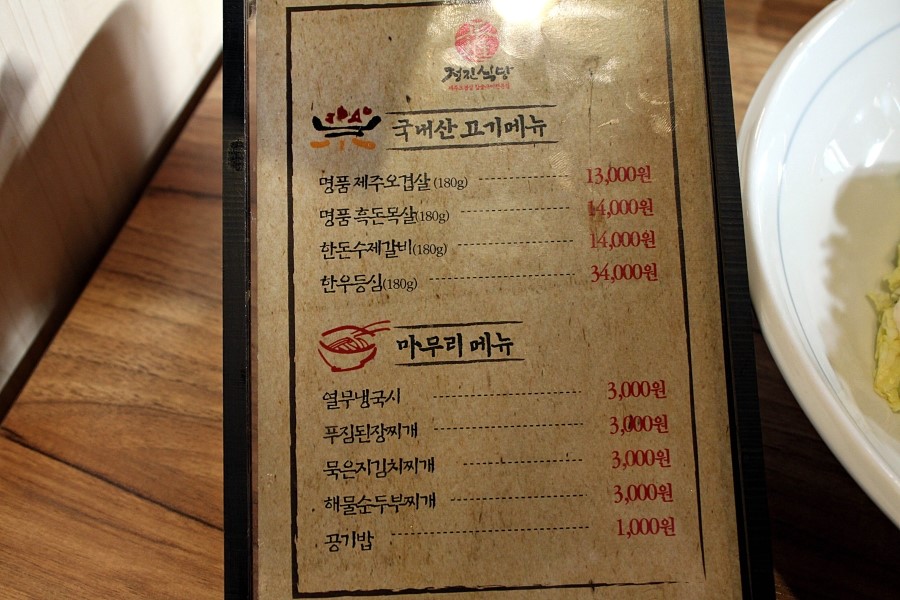 정진식당
국내산 고기메뉴
명품 제주오겹살 (180g) 13,000원
명품 흑돈목살(180g) 14,000원
한돈수제갈비(180g) 14,000원
한우등심(180g) 34,000원
마무리 메뉴
열무냉국시 3,000원
푸짐된장찌개 3,000원
묵은지김치찌개 3,000원
해물순두부찌개 3,000원
공기밥 1,000원